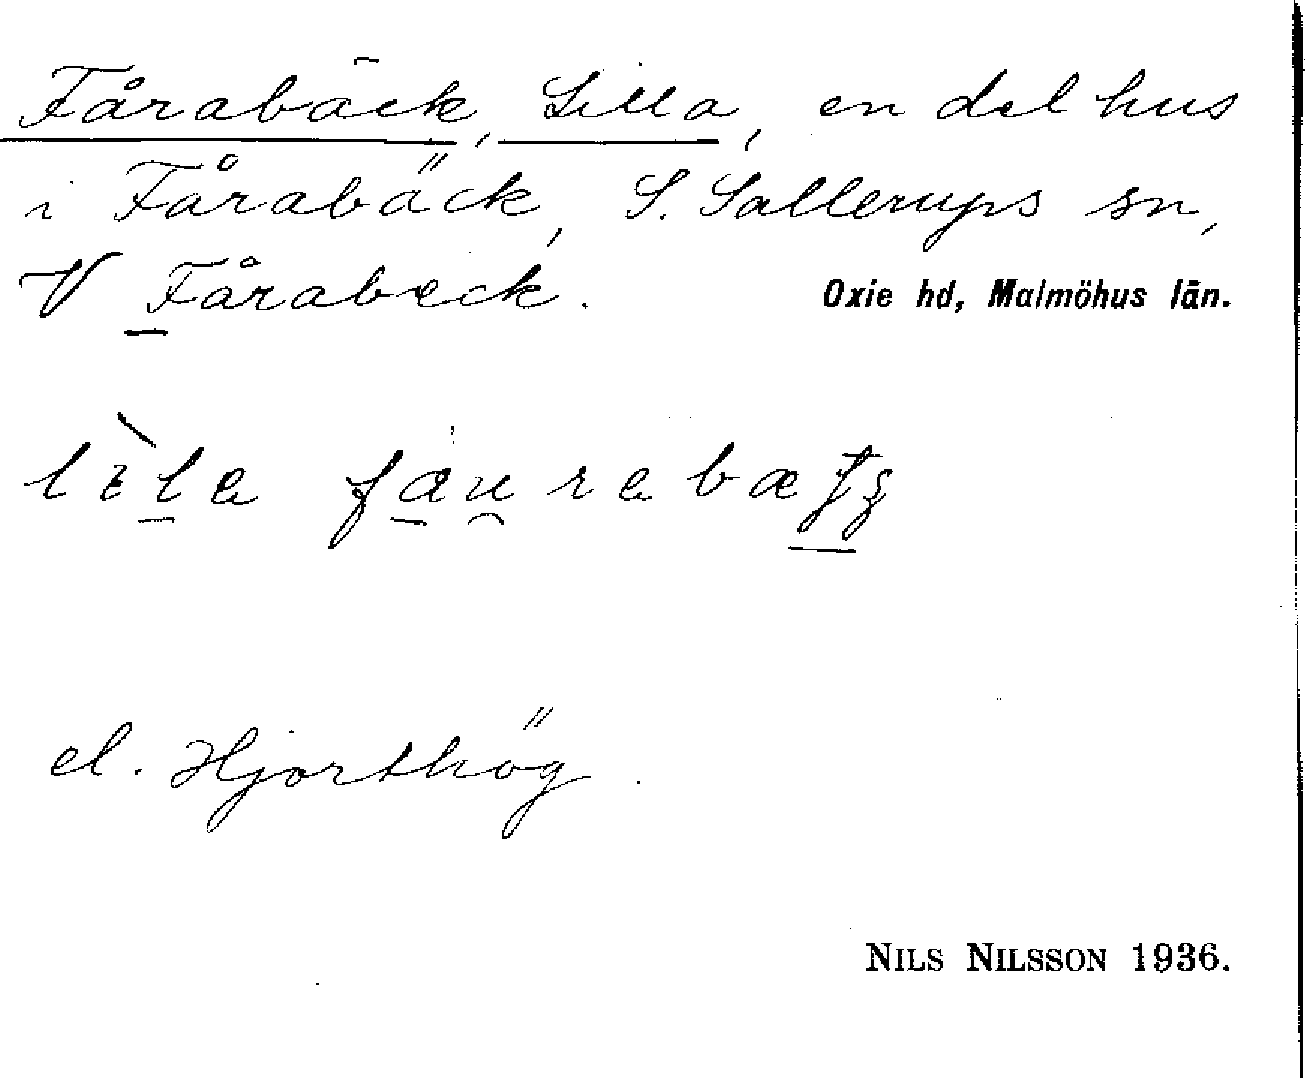 Fårabäck, Lilla, en del hus
i Fårabäck, S. Sallerups sn,
V Fårabeck.
Oxie hd, Malmöhus län.
el. Hjorthög.
NILS NILSSON 1936.